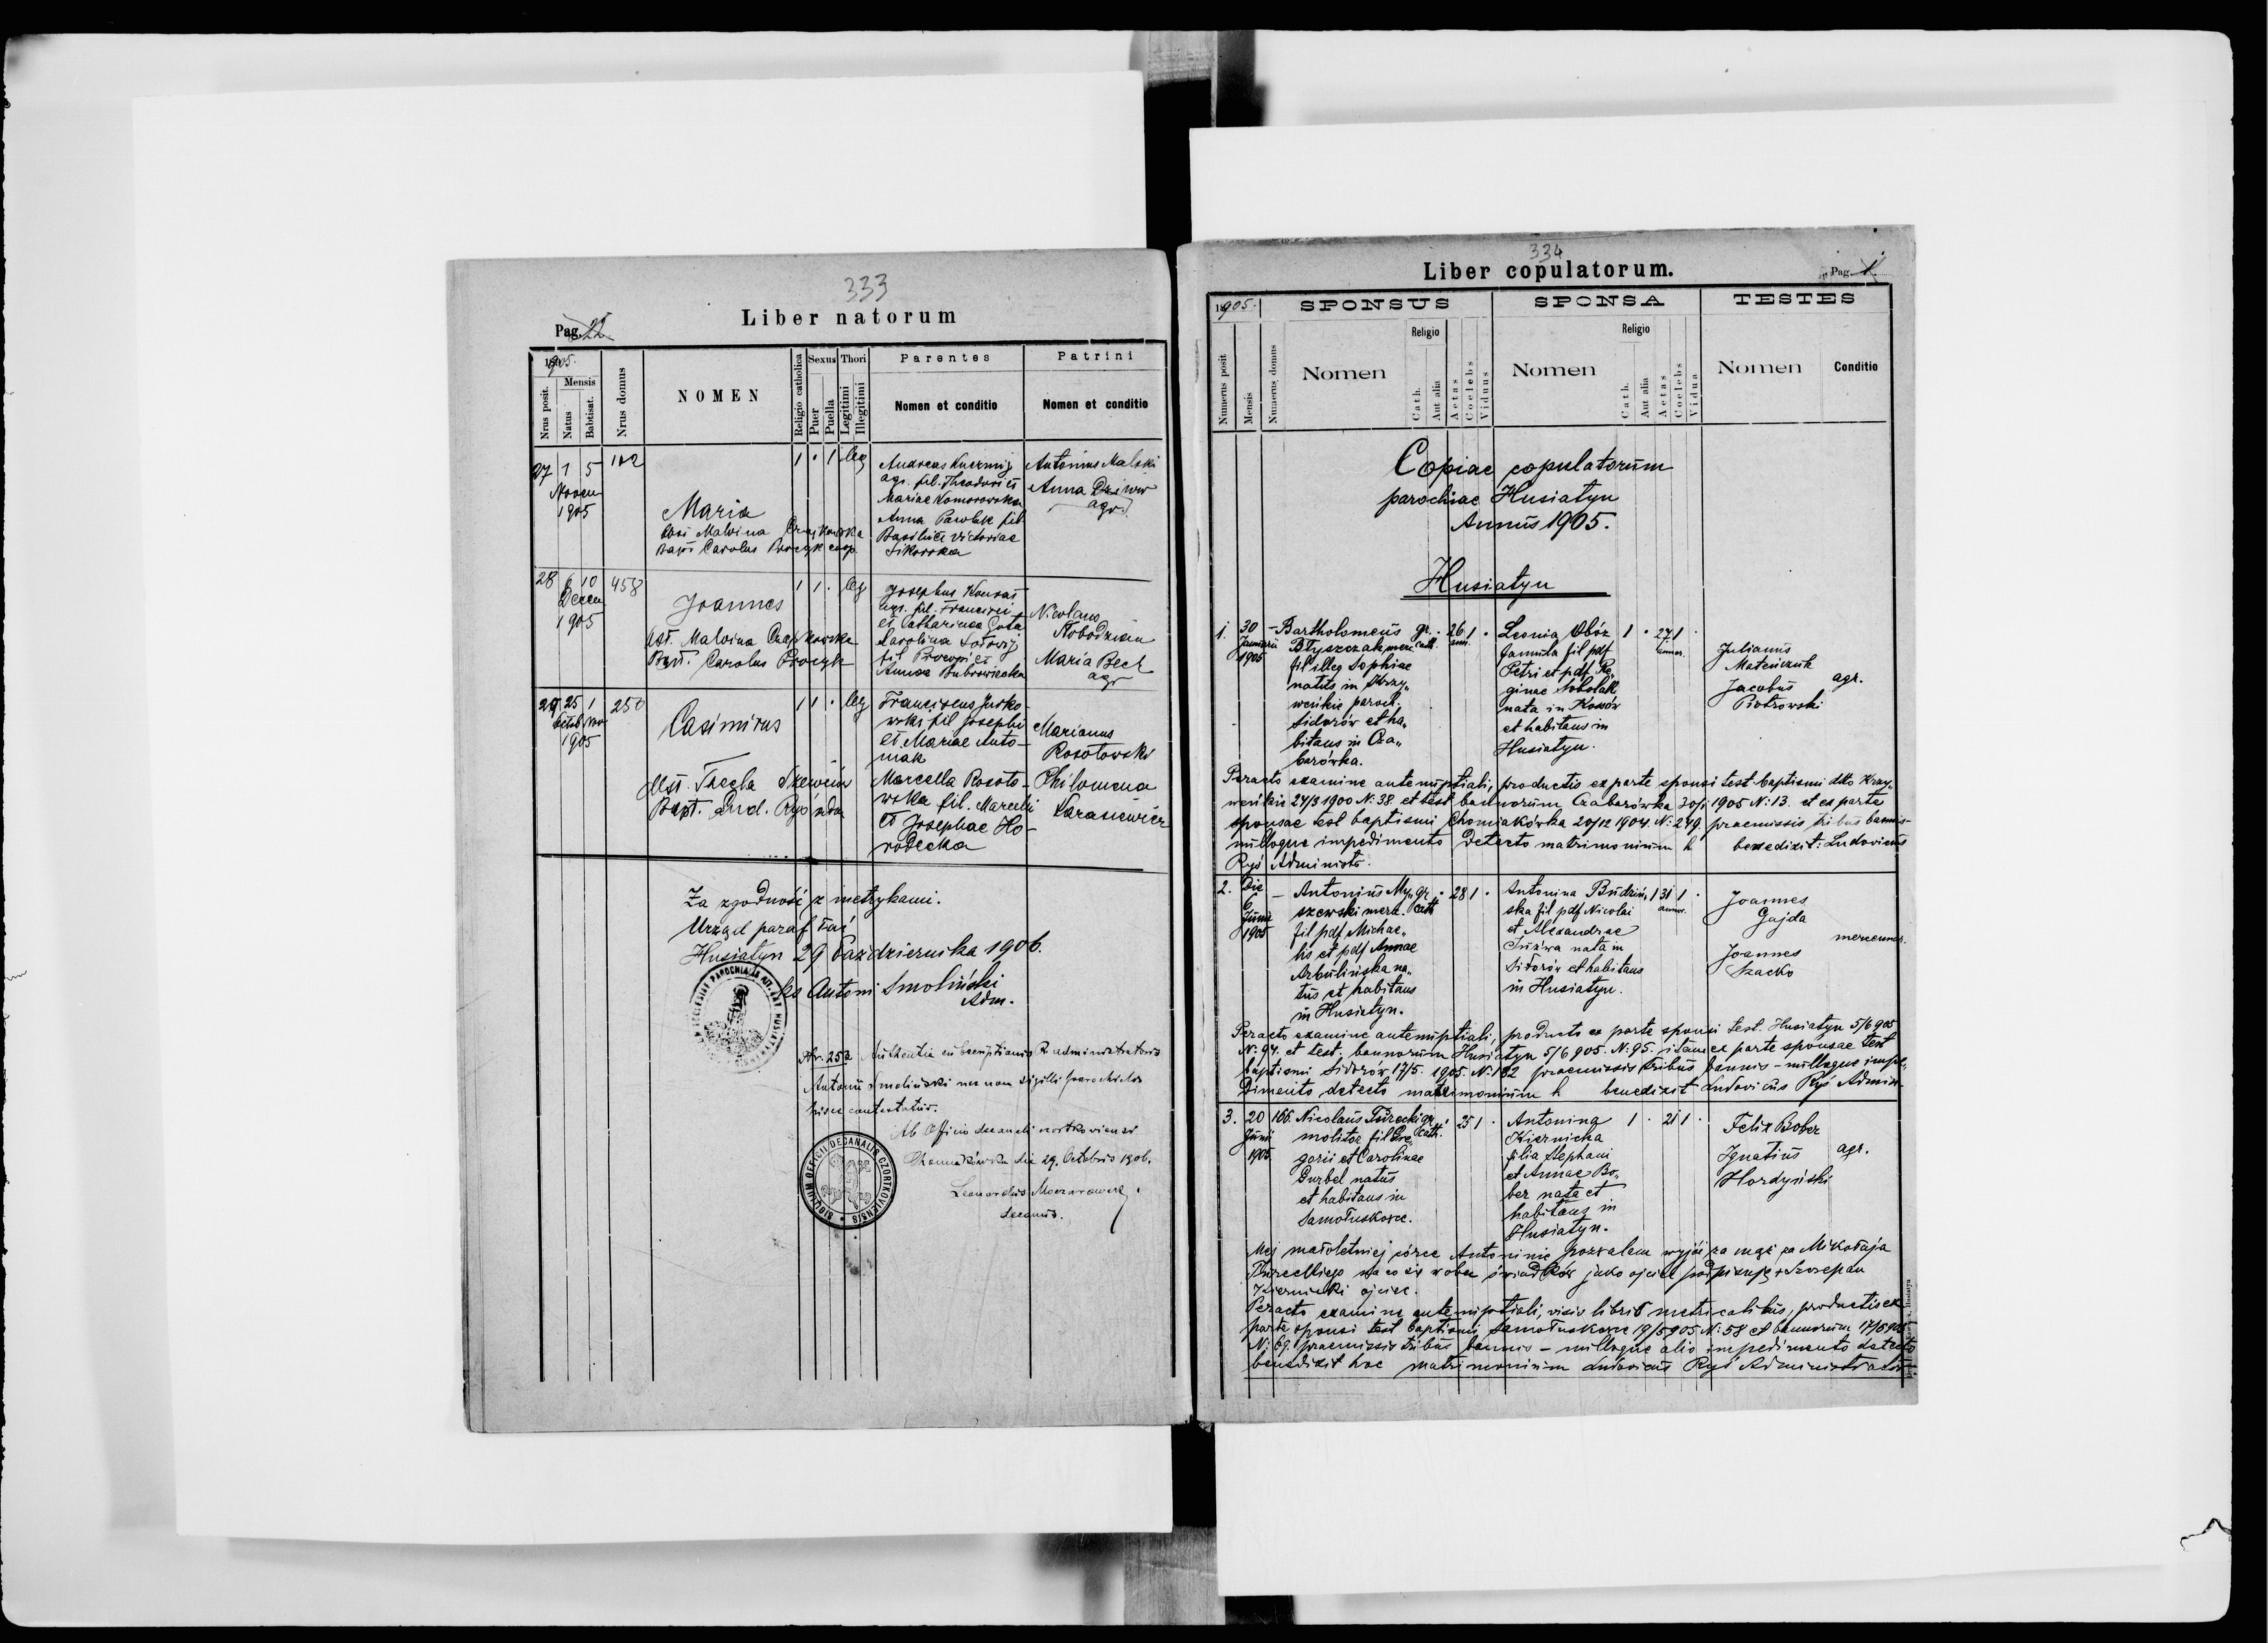 333
Liber natorum
Pag. 22
1905.
Nrus posit.
Mensis
Natus
Babtisat.
Nrus domus
NOMEN
Religio catholica
Sexus
Puer
Puella
Thori
Legitimi
Illegitimi
Parentes
Nomen et conditio
Patrini
Nomen et conditio
27 1 5
Novem
1905
Maria
Obst Malvina Czajkowska
Bapt Carolus Procyk coop.
1 · 1 leg
Andreas
agr. fil. Theodori et
Mariae Komorowska
Anna Pawluk fil
Basilii et Victoriae
Sikorska
Antonius Malski
Anna
agr.
28 6 10 458
Decem
1905
Joannes
Obst. Malvina Czajkowska
Bapt. Carolus Procyk
1 1 · leg
Josephus
agr. fil. Francisci
et Catharinae
Carolina
fil Procopi et
Annae Dubrowiecka
Nicolaus
Słobodzian
Maria Bech
agr
29 25 1 250
Octob Nov
1905
Casimirus
Obst. Thecla
Bapt. Lud. Ryś adm
1 1 · leg
Franciscus Jurko-
wski fil Josephi
et Mariae Anto-
niak
Marcella Rosoto-
wska fil. Marcelli
et Josephae Ho-
rodecka
Marianus
Rosotowski
Philomena
Karasiewicz
Za zgodność z metrykami.
Urząd parafialny
Husiatyn 29 Października 1906.
ks Antoni Smoliński
Adm.
Nr. 252 Authentia subscriptionis R administratoris
Antonii Smoliński nec non sigilli parochialis
hisce contestatur.
Ab Officio decanali czortkoviensi
Chomiakówka die 29. Octobris 1906.
Leonardus
decanus.
SIGILLUM OFFICII DECANALIS CZORTKOVIENSIS
334
Liber copulatorum.
Pag. 1.
1905.
SPONSUS
SPONSA
TESTES
Numerus posit
Mensis
Numerus domus
Nomen
Religio
Cath.
Aut alia
Aetas
Coelebs
Viduus
Nomen
Religio
Cath.
Aut alia
Aetas
Coelebs
Vidua
Nomen
Conditio
Copiae copulatorum
parochiae Husiatyn
Annus 1905.
Husiatyn
1. 30
Januarii
1905
- Bartholomeus
Błyszczak merc
fil illeg Sophiae
natus in Krzy„
weńkie paroch.
Sidorów et ha„
bitans in Cza„
barówka.
gr. cath. · 26 1 ·
Leonia Obóz
famula fil pdf
Petri et pdf Re„
ginae Sobolak
nata in Kossów
et habitans in
Husiatyn.
1 · 27 1 ·
annor.
Julianus
Mateńczuk
Jacobus
Piotrowski
agr.
Peracto examine antenuptiali, productis ex parte sponsi test. baptismi dto Krzy„
weńkie 24/3 1900 N: 38. et test bannorum Czabarówka 30/1 1905 N: 13. et ex parte
sponsae test baptismi Chomiakówka 20/12 1904. N: 249. praemissis tribus bannis-
nulloque impedimento detecto matrimonium h benedixit: Ludovicus
Ryś Administr.
2. Die
6
Junii
1905
- Antonius My„
szewski merc.
fil pdf Michae„
lis et pdf Annae
Arbulińska na„
tus et habitans
in Husiatyn.
gr cath · 28 1 ·
Antonina Budziń„
ska fil pdf Nicolai
et Alexandrae
Juźwa nata in
Sidorów et habitans
in Husiatyn.
1 31 1 ·
annor.
Joannes
Gajda
Joannes
Szacko
mercennar.
Peracto examine antenuptiali, producto ex parte sponsi test. Husiatyn 5/6 905
N: 94. et test. bannorum Husiatyn 5/6 905. N: 95. itam ex parte sponsae test
baptismi Sidorów 17/5. 1905. N: 132 praemissis tribus bannis - nulloque impe„
dimento detecto matrimonium h benedixit Ludovicus Ryś Admin-
3. 20 166.
Junii
1905
Nicolaus Turecki
molitor fil Gre„
gorii et Carolinae
Durbel natus
et habitans in
Samołuskowce.
gr cath. · 25 1 ·
Antonina
Kiernicka
filia Stephani
et Annae Bo„
ber nata et
habitans in
Husiatyn.
1 · 21 1 ·
Felix Bober
Ignatius
Hordyński
agr.
Mej małoletniej córce Antoninie pozwalem wyjść za mąż za Mikołaja
Tureckiego na co się wobec świadków jako ojciec podpisuję + Szczepan
Kiernicki ojciec.
Peracto examine antenuptiali, visis libris metricalibus, productis ex
parte sponsi test baptismi Samołuskowce 19/5 905 N: 58 et bannorum 17/6 905
N: 69. praemissis tribus bannis - nulloque alio impedimento detecto
benedixit hoc matrimonium Ludovicus Ryś Administrator